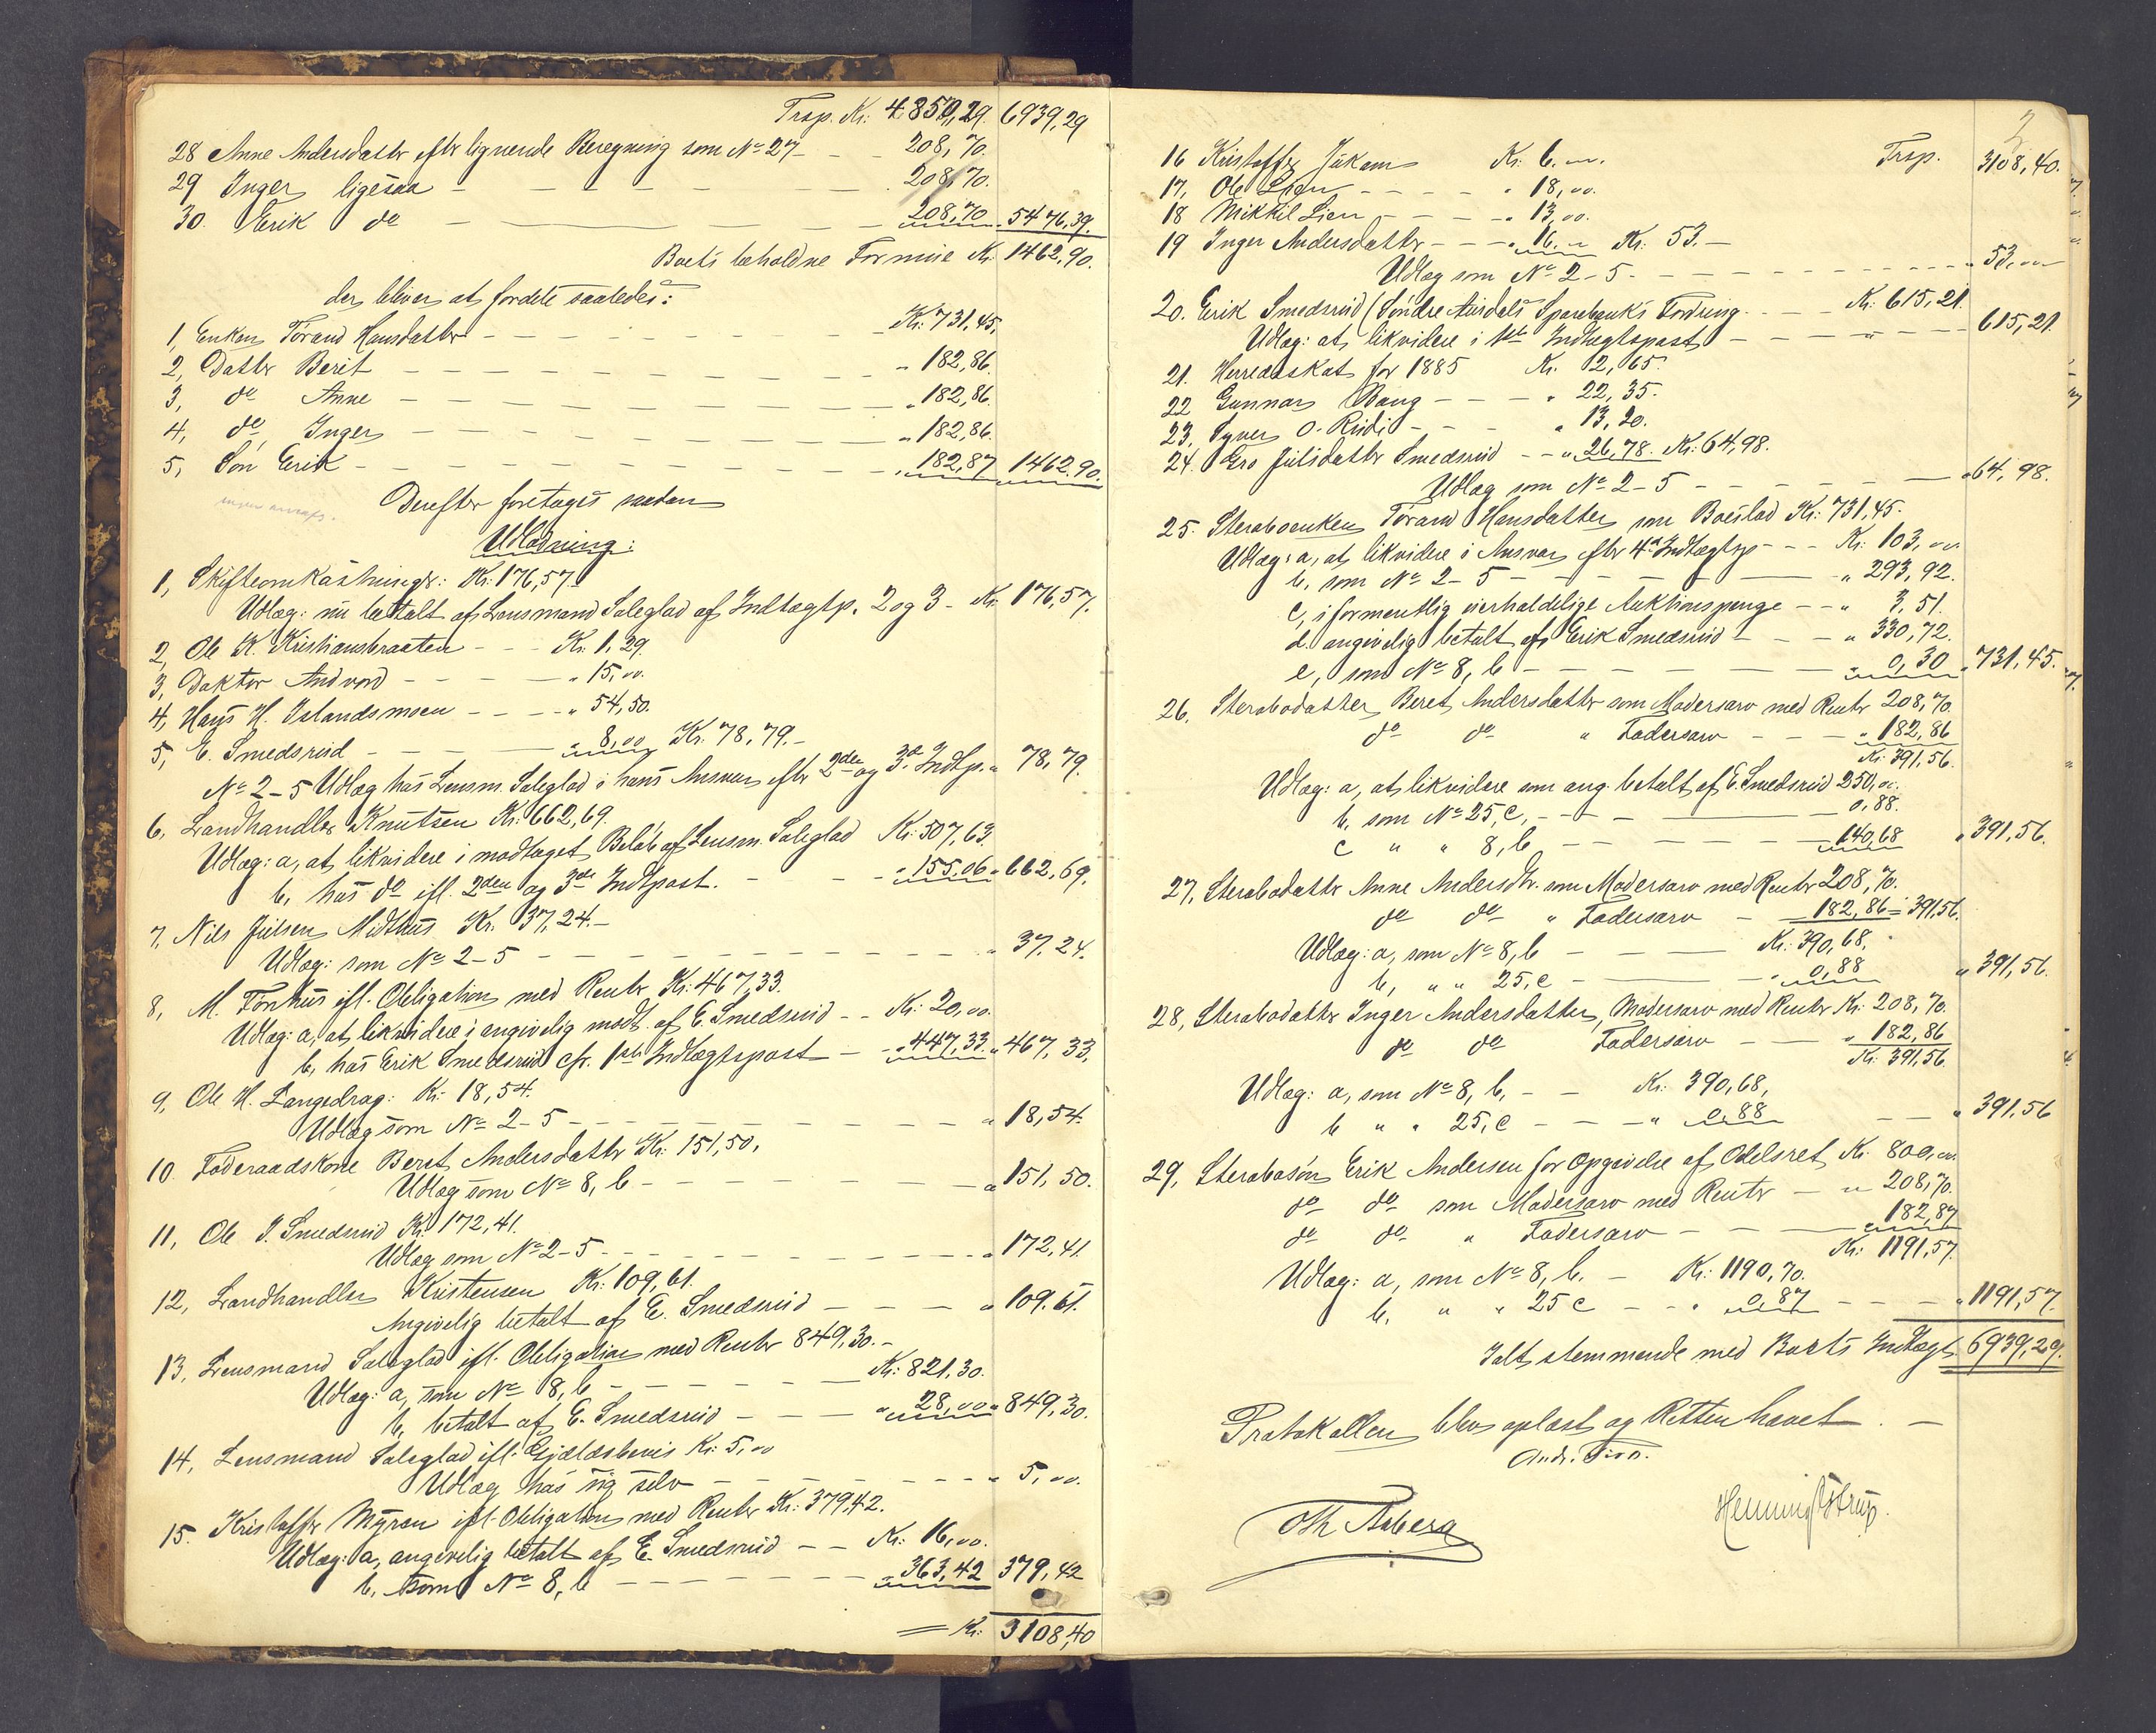 Trsp. Kr: 4850,29. 6939,29
28 Anne Andersdatter eftr lignende Beregning som No 27 - - 208,70.
29 Inger ligesaa - - - - - 208,70.
30. Erik do - - - - 208,70 5476,39.
Boets beholdne Formue Kr. 1462,90.
der bliver at fordele saaledes:
1, Enken Törand Hansdatter - - - - Kr: 731,45.
2, Datter Berit - - - - " 182,86.
3, do Anne - - - - " 182,86.
4, do, Inger - - - - " 182,86.
5, Sön Erik - - - - " 182,87 1462,90.
Derefter foretages saadan
Udlodning:
1, Skifteomkostninger: Kr: 176,57.
Udlæg: nu betalt af Lensmand Saleglad af Indtægtp. 2 og 3 - Kr. 176,57.
2, Ole K. Kristiansbraaten - - Kr. 1,29.
3, Doktor Andvord - - - " 15,00.
4, Hans H. Islandsmoen - - - " 54,50.
5, E. Smedsrud - - - " 8,00 Kr. 78,79.-
No 2-5 Udlæg hos Lensm. Saleglad i hans Ansvar eftr 2den og 3de Indtp. " 78,79.
6, Landhandler Knutsen Kr: 662,69.
Udlæg: a, at likvidere i modtaget Beløb af Lensm. Saleglad Kr: 507,63.
b, hos do ifl. 2den og 3de Indtpost. - - " 155,06 " 662,69.
7, Nils Julsen Midthus Kr. 37,24.-
Udlæg: som No 2-5 - - - - " 37,24.
8, M. Tönhus ifl. Obligation med Renter Kr: 467,33.
Udlæg: a, at likvidere i angivelig modt. af E. Smedsrud - - Kr: 20,00.
b, hos Erik Smedsrud cfr. 1ste Indtægtspost - " 447,33. " 467,33.
9, Ole H. Langedrag: Kr: 18,54.
Udlæg som No 2-5 - - - - " 18,54.
10. Föderaadskone Beret Andersdatter Kr: 151,50.
Udlæg som No 8, b - - - - " 151,50.
11, Ole J. Smedsrud Kr. 172,41.
Udlæg som No 2-5 - - - - " 172,41
12, Landhandler Kristensen Kr: 109,61.
Angivelig betalt af E. Smedsrud - - - " 109.61.
13, Lensmand Saleglad ifl. Obligation med Renter 849,30.-
Udlæg: a, som No 8, b - - - - Kr: 821,30.
b, betalt af E. Smedsrud - - - " 28,00 " 849,30.
14, Lensmand Saleglad ifl. Gjældsbevis Kr: 5,00
Udlæg hos sig selv - - - - " 5,00.
15. Kristoffer Myren ifl. Obligation med Renter Kr: 379,42.
Udlæg: a, angivelig betalt af E. Smedsrud - - Kr: 16,00.
b, som No 8, b - - - - " 363,42 379,42
= Kr: 3108,40
2
16 Kristoffer Jukam Kr: 6.00. Trsp. 3108,40.
17, Ole Lien - - - - " 18,00.
18 Mikkil Lien - - - - " 13,00.
19 Inger Andersdatter - - - " 16.00 Kr: 53.-
Udlæg som No 2-5 - - - - " 53,00
20. Erik Smedsrud (Söndre Aurdals Sparebanks Fordring - - - Kr: 615,21.
Udlæg: at likvidere i 1ste Indtægtspost - - - - " 615,21.
21. Herredsskat for 1885 Kr. 2,65.
22 Gunnar Bang - - - " 22,35.
23, Syver O. Rudi - - - " 13,20.
24. Gro Julsdatter Smedsrud - - " 26,78. Kr: 64,98.
Udlæg som No 2-5 - - - - " 64,98.
25. Sterboenken Törand Hansdatter som Boeslod Kr: 731,45.
Udlæg: a, at likvidere i Ansvar eftr 4de Indtægtsp - - - Kr: 103,00.
b, som No 2-5 - - - - " 293,92.
c, i formentlig uerholdelige Auktionspenge - - " 3,51.
d. angivelig betalt af Erik Smedsrud - - - " 330,72.
e, som No 8, b - - - - " 0,30 " 731,45.
26. Sterbodatter Beret Andersdatter som Modersarv med Renter 208,70.
do do " Fadersarv - - - " 182,86
Kr. 391,56.
Udlæg: a, at likvidere som ang. betalt af E. Smedsrud 250,00.
b, som No 25, c, - - - - 0,88.
c " " 8, b - - - - 140,68 " 391,56.
27, Sterbodatter Anne Andersdtr. som Modersarv med Renter 208,70.
do do " Fadersarv - 182,86 = 391,56.
Udlæg: a, som No 8, b - - - Kr: 390,68.
b, " " 25, c - - - " 0,88 " 391,56.
28, Sterbodatter Inger Andersdatter, Modersarv med Renter Kr: 208,70.
do do Fadersarv - - " 182,86
Kr: 391,56.
Udlæg: a, som No 8, b, - - Kr: 390,68,
b " " 25, c - - - " 0,88 - - " 391,56
29, Sterbosön Erik Andersen for Opgivelse af Odelsret Kr. 800,00.
do do som Modersarv med Renter - " 208,70.
do do " Fadersarv - - " 182,87
Kr: 1191,57.
Udlæg: a, som No 8, b. - Kr: 1190,70.
b, " " 25 c - - " 0,87 - - - " 1191,57.
Ialt stemmende med Boets Indtægt 6939,29.
Protokollen blev oplæst og Retten hævet. -